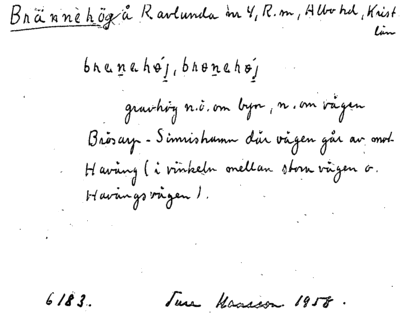 Brännehög å Ravlunda nr 4, R. sn, Albo hd, Krist
län
brenehøj, brønehøj
gravhög n.ö. om byn, n. om vägen
Brösarp - Simrishamn där vägen går av mot
Haväng (i vinkeln mellan stora vägen o.
Havängsvägen).
6183. Ture 1958.